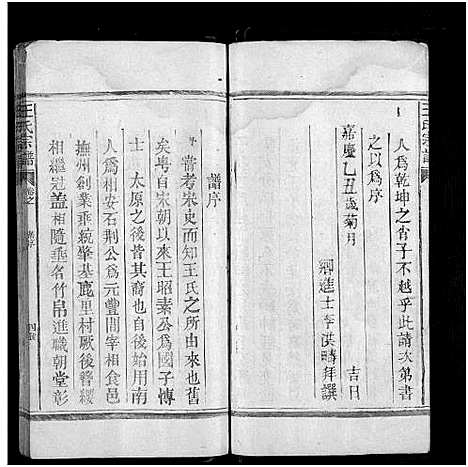 王氏宗譜
人為乾坤之肖子不越乎此請次第書
之以為序
嘉慶乙丑歲菊月 吉日
鄉進士李洪疇拜譔
譜序
嘗考宋史而知王氏之所由來也舊
矣粵自宋朝以來王昭素公為國子博
士太原之後皆其裔也自後始用南
人為相安石荆公為元豐間宰相食邑
撫州創業垂統肇基鹿里村厥後簪纓
相繼冠盖相隨垂名竹帛進職朝堂彰
王氏宗譜